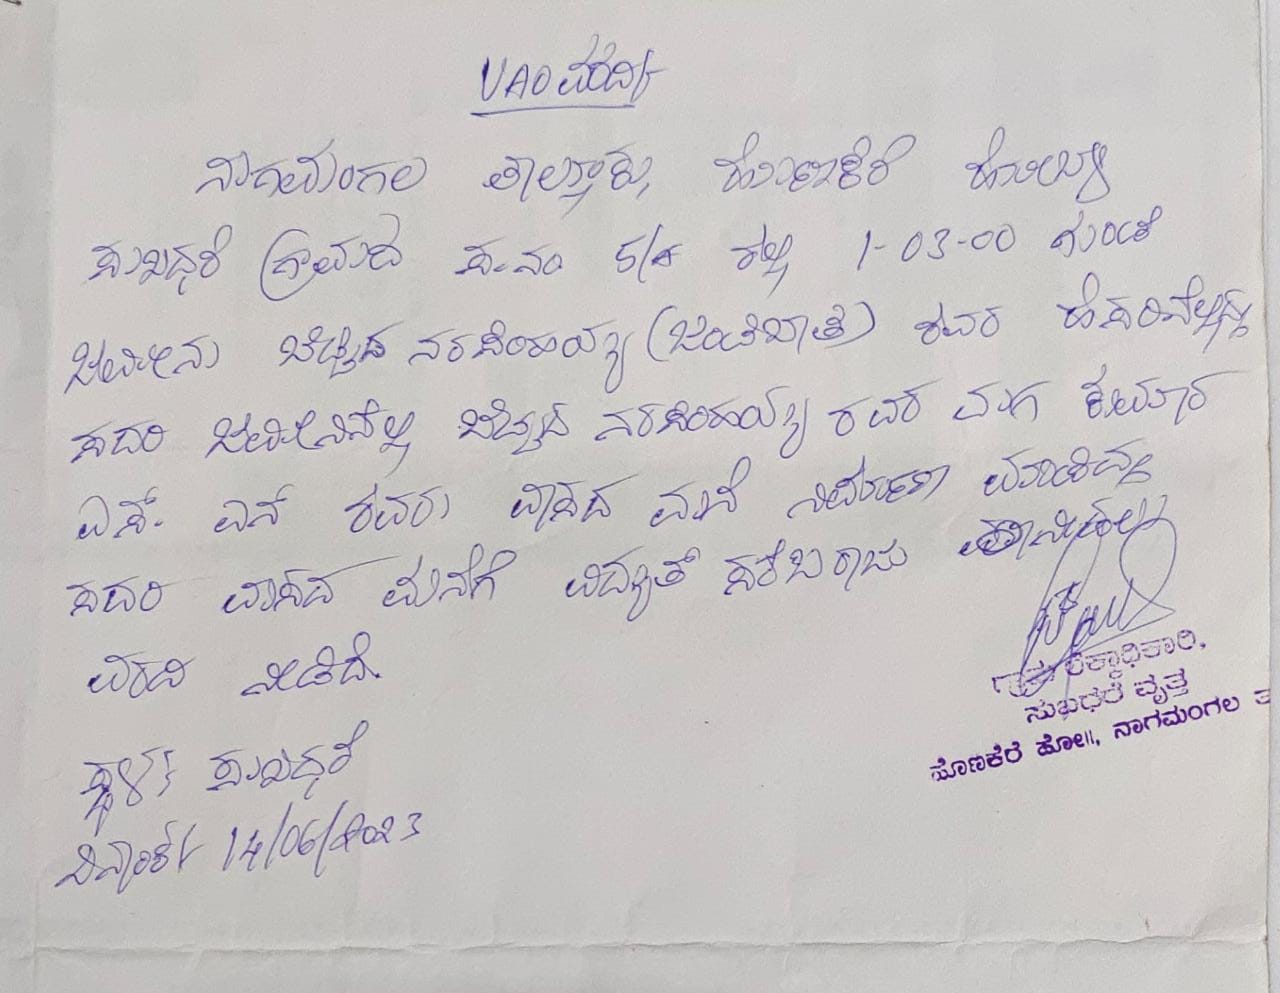 VAO ವರದಿ
ನಾಗಮಂಗಲ ತಾಲ್ಲೂಕು, ಹೊಣಕೆರೆ ಹೋಬಳಿ
ಸುಖಧರೆ ಗ್ರಾಮದ ಸ.ನಂ 5/4 ರಲ್ಲಿ 1-03-00 ಗುಂಟೆ
ಜಮೀನು ನರಸಿಂಹಯ್ಯ (ಜಂಟಿಖಾತೆ) ರವರ ಹೆಸರಿನಲ್ಲಿದ್ದು
ಸದರಿ ಜಮೀನಿನಲ್ಲಿ ನರಸಿಂಹಯ್ಯ ರವರ ಮಗ ಕುಮಾರ
ಎಸ್. ಎನ್ ರವರು ವಾಸದ ಮನೆ ನಿರ್ಮಾಣ ಮಾಡಿದ್ದು
ಸದರಿ ವಾಸದ ಮನೆಗೆ ವಿದ್ಯುತ್ ಸರಬರಾಜು
ವರದಿ ನೀಡಿದೆ.
ಗ್ರಾಮ ಲೆಕ್ಕಾಧಿಕಾರಿ,
ಸುಖಧರೆ ವೃತ್ತ
ಹೊಣಕೆರೆ ಹೋ||, ನಾಗಮಂಗಲ ತಾ
ಸ್ಥಳ: ಸುಖಧರೆ
ದಿನಾಂಕ: 14/06/2023